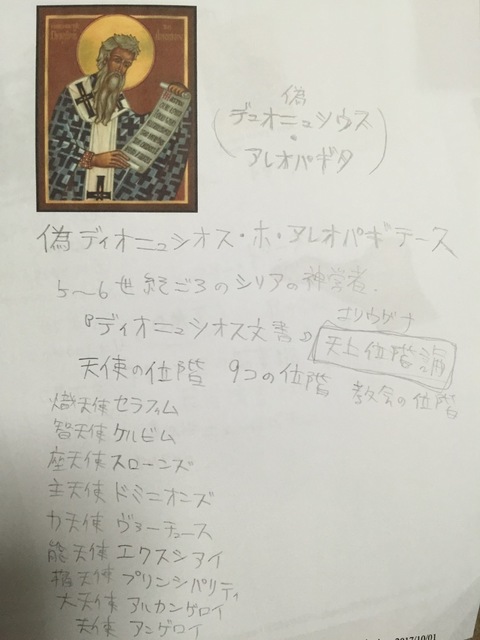 偽
(デュオニュシウス
・
アレオパギタ)
偽ディオニュシオス・ホ・アレオパギテース
5〜6世紀ごろのシリアの神学者.
エリウゲナ
『ディオニュシオス文書』 天上位階論
天使の位階 9つの位階 教会の位階
熾天使 セラフィム
智天使 ケルビム
座天使 スローンズ
主天使 ドミニオンズ
力天使 ヴァーチュース
能天使 エクスシアイ
権天使 プリンシパリティ
大天使 アルカンゲロイ
天使 アンゲロイ
2017/10/01